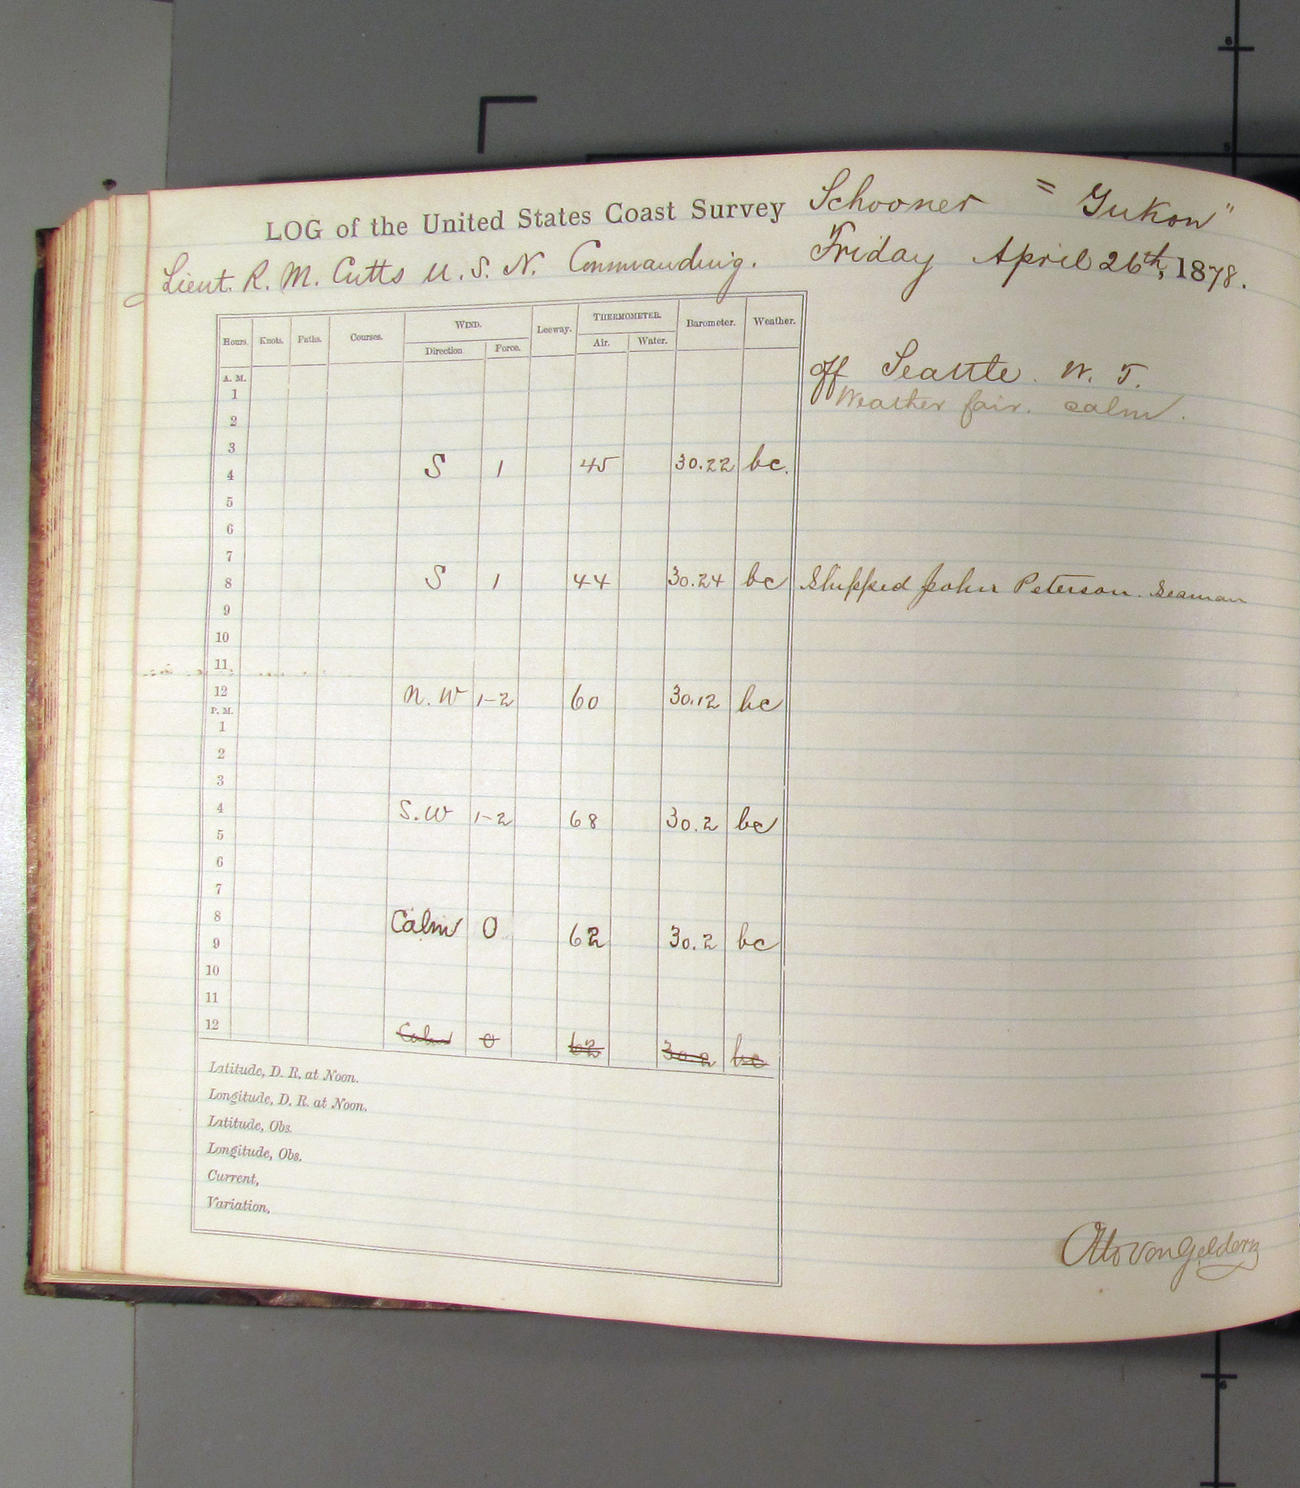 LOG of the United States Coast Survey Schooner "Yukon"
Lieut. R. M. Cutts U. S. N. Commanding. Friday April 26th, 1878.
Hours. Knots. Faths. Courses. WIND. Leeway. THERMOMETER. Barometer. Weather.
Direction Force. Air. Water.
A. M.
off Seattle. W. T.
1
Weather fair. calm.
2
3
4 S 1 45 30.22 bc.
5
6
7
8 S 1 44 30.24 bc Shipped John Peterson. Seaman
9
10
11
12 N. W 1-2 60 30.12 bc
P. M.
1
2
3
4 S. W 1-2 68 30.2 bc
5
6
7
8 Calm 0 62 30.2 bc
9
10
11
12 Calm 0 62 30.2 bc
Latitude, D. R. at Noon.
Longitude, D. R. at Noon.
Latitude, Obs.
Longitude, Obs.
Current,
Variation,
Otto von Geldern